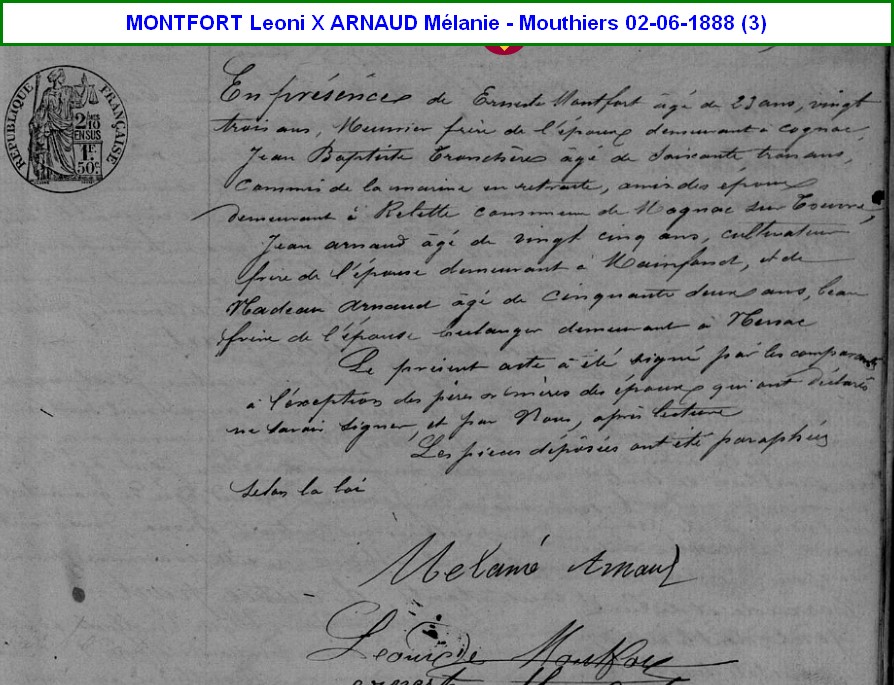 MONTFORT Leoni X ARNAUD Mélanie - Mouthiers 02-06-1888 (3)
RÉPUBLIQUE FRANÇAISE
2/10
EN SUS
1F.
50c
En présences de Ernest Montfort âgé de 23 ans, vingt
trois ans, Meunier frère de l'époux demeurant à Cognac,
Jean Baptiste âgé de soixante trois ans,
Commis de la marine en retraite, amis des époux
demeurant à Relette commune de Magnac sur Touvre,
Jean arnaud âgé de vingt cinq ans, cultivateur
frère de l'épouse demeurant à Mainfond, et de
Nadeau Arnaud âgé de cinquante deux ans, beau
frère de l'épouse boulanger demeurant à Nersac
Le présent acte a été signé par les comparants
à l'exception des pères et mères des époux qui ont déclarés
ne savoir signer, et par Nous, après lecture
Les pièces déposées ont été paraphées
selon la loi
Melanie Arnaud
Montfort